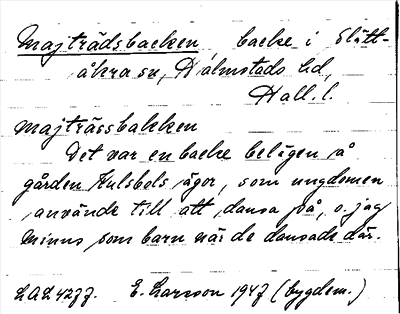 Majträdsbacken, backe i Slätt-
åkra sn, Halmstads hd,
Hall. l.
majträssbakken
Det var en backe belägen å
gården Hulsbols ägor, som ungdomen
använde till att dansa på, o. jag
minns som barn när de dansade där.
LAL 4277. E. Larsson 1947 (bygdem.)